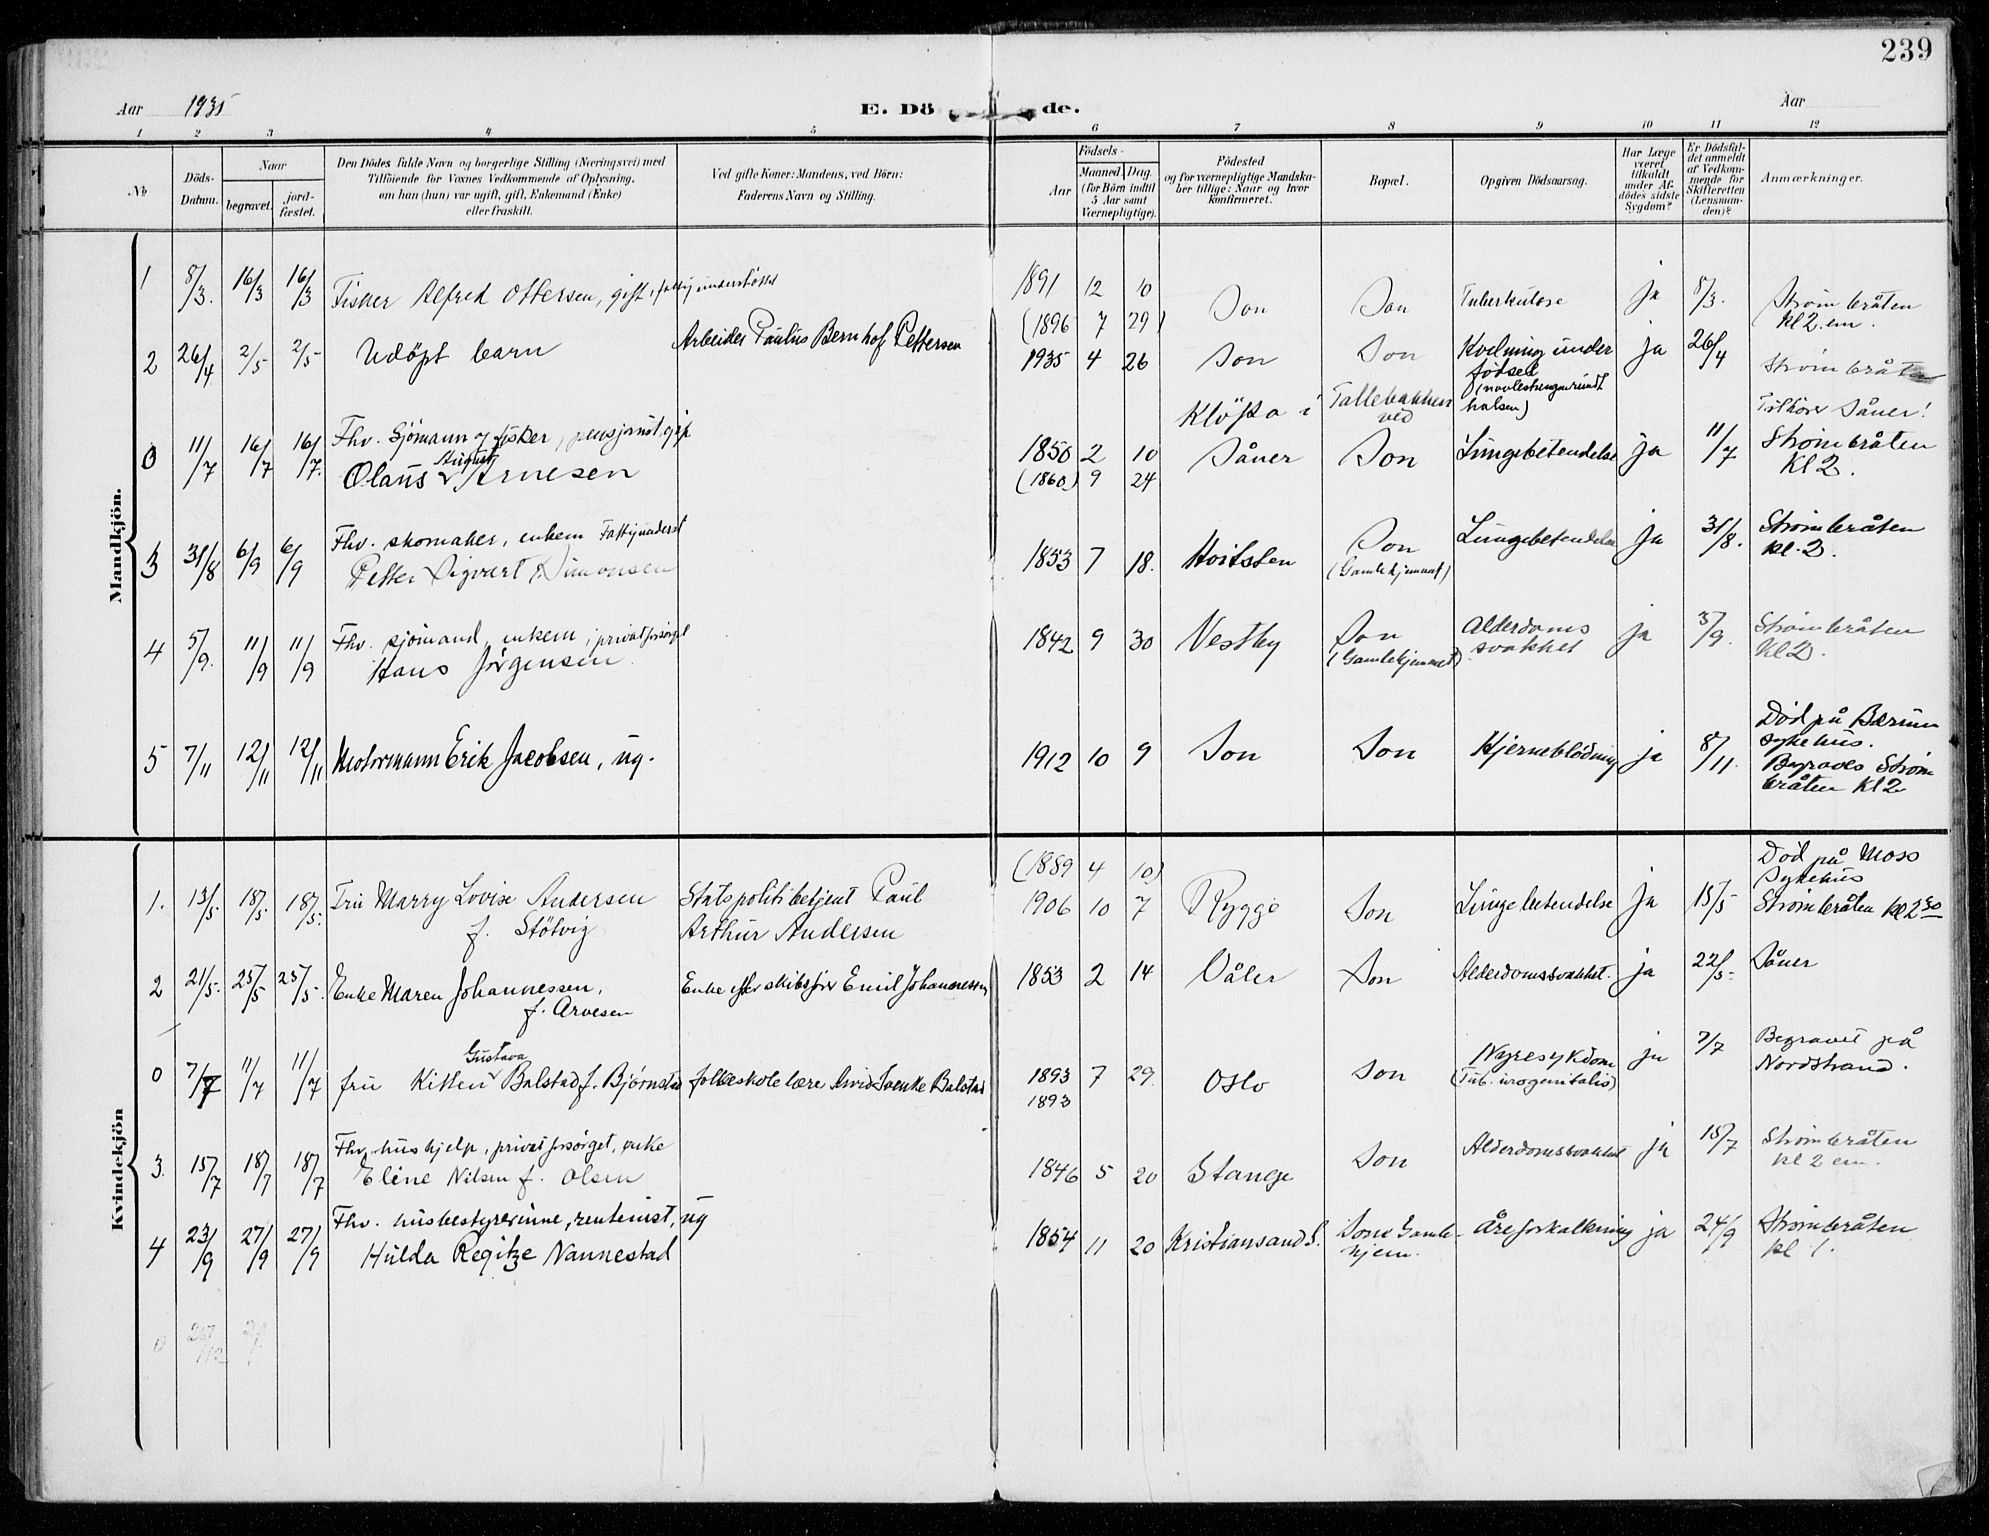 239
Aar 1935 E. Dö de. Aar
1 2 3 4 5 6 7 8 9 10 11 12
No
Döds-Datum.
Naar
begravet. jordfæstet.
Den Dödes fulde Navn og borgerlige Stilling (Næringsvei) med
Tilföiende for Voxnes Vedkommende af Oplysning,
om han (hun) var ugift, gift, Enkemand (Enke)
eller fraskilt.
Ved gifte Koner: Mandens, ved Börn:
Faderens Navn og Stilling.
Födsels-
Aar Maaned. Dag.
(for Börn indtil
5 Aar samt
Værnepligtige).
Födested
og for værnepligtige Mandska-
ber tillige: Naar og hvor
konfirmeret.
Bopæl.
Opgiven Dödsaarsag.
Har Læge
været
tilkaldt
under Af-
dödes sidste
Sygdom?
Er Dödsfal-
det anmeldt
af Vedkom-
mende for
Skifteretten
(Lensman-
den)?
Anmærkninger.
Mandkjön.
1 8/3. 16/3 16/3 Fisker Alfred Ottersen, gift, fattigunderstöttet 1891 12 10 Son Son Tuberkulose ja 8/3. Strømbråten
(1896 7 29) kl 2. em.
2 26/4 2/5 2/5 Udöpt barn Arbeider Paulus Bernhof Pettersen 1935 4 26 Son Son Kvelning under ja 26/4 Strømbråten
fødsel
(navlestrengen rundt
halsen)
Tilhører Såner!
0 11/7 16/7 16/7. Fhv. Sjömann og fisker, pensjonist, gift Klöfta i Tallebakken
ved
Olaus August Arnesen 1850 2 10 Såner Son Lungebetendelse ja 11/7 Strømbråten
(1860) 9 24 Kl 2.
3 31/8 6/9 6/9 Fhv. skomaker, enkem Fattigunderst
Petter Sigvart Simonsen 1853 7 18. Hvitsten Son Lungebetendelse ja 31/8. Strømbråten
(Gamlehjemmet) kl. 2.
4 5/9. 11/9 11/9 Fhv. sjömand, enkem, privat forsörget
Hans Jörgensen 1842 9 30 Vestby Son Alderdoms ja 5/9. Strømbråten
(Gamlehjemmet) svakhet Kl 2.
5 7/11 12/11 12/11 Motormann Erik Jacobsen, ug. 1912 10 9 Son Son Hjerneblödning ja 8/11. Död på Bærum
sykehus.
Begraves Strøm
bråten Kl 2
Kvindekjön
1. 13/5 18/5 18/5. Fru Marry Lovise Andersen Statspolitibetjent Paul (1889 4 10)
f. Stötvig Arthur Andersen 1906 10 7 Rygge Son Lungebetendelse ja 15/5 Död på Moss
Sykehus
Strømbråten kl 2 30
2 21/5. 25/5 25/5. Enke Maren Johannessen, Enke efter skibsfører Emil Johannessen 1853 2 14 Våler Son Alderdomssvakhet. ja 22/5- Såner
f. Arvesen
0 7/7 11/7 11/7 fru Kitten Gustava Balstad f. Bjørnstad folkeskolelære Arvid Svenke Balstad 1893 7 29. Oslo Son Nyresykdom ja 7/7 Begravet på
1893 (Tub. urogenitalis) Nordstrand.
3. 15/7 18/7 18/7 Fhv. hushjelp, privat forsörget, enke
Eline Nilsen f. Olsen 1846 5 20 Stange Son Alderdomssvakhet ja 15/7 Strømbråten
kl 2 em.
4 23/9 27/9 27/9 Fhv. husbestyrerinne, rentenist, ug
Hulda Regitze Nannestad 1854 11 20 Kristiansand S. Sons Gamle- Åreforkalkning ja 24/9 Strømbråten
hjem. kl 1.
0